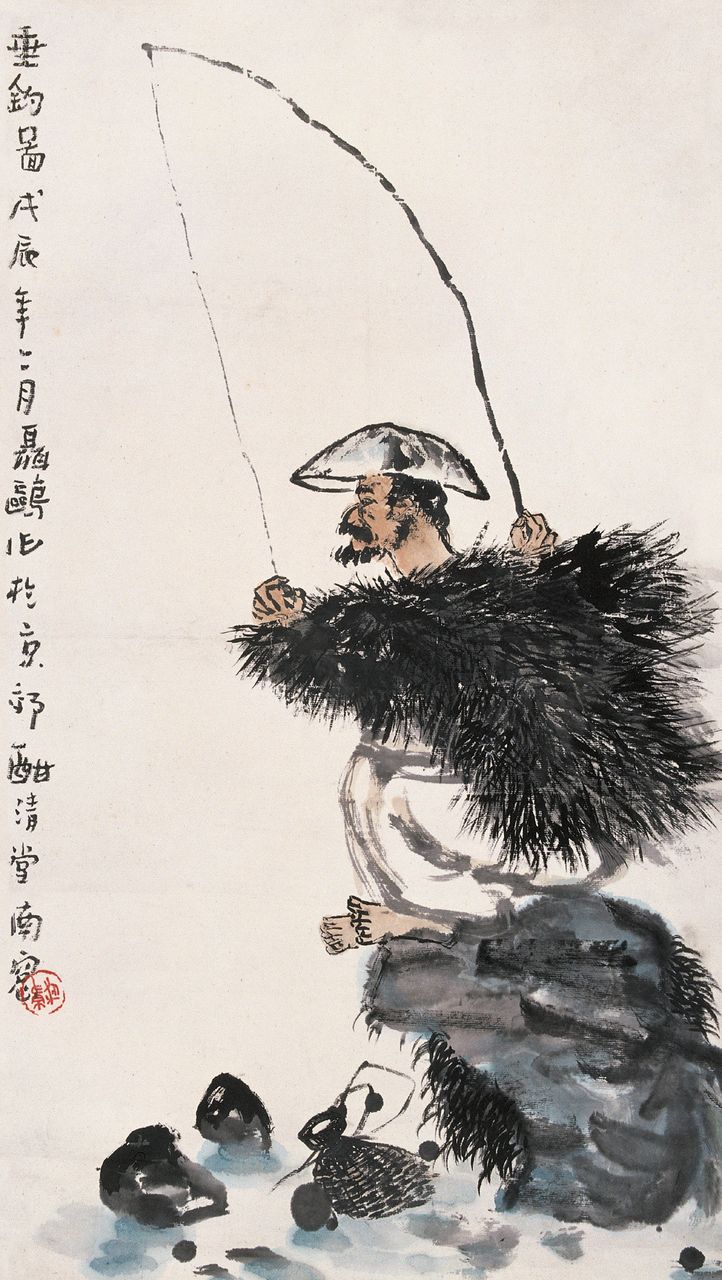 垂钓啚戊辰年二月聶鷗作於京郊酣清堂南窗